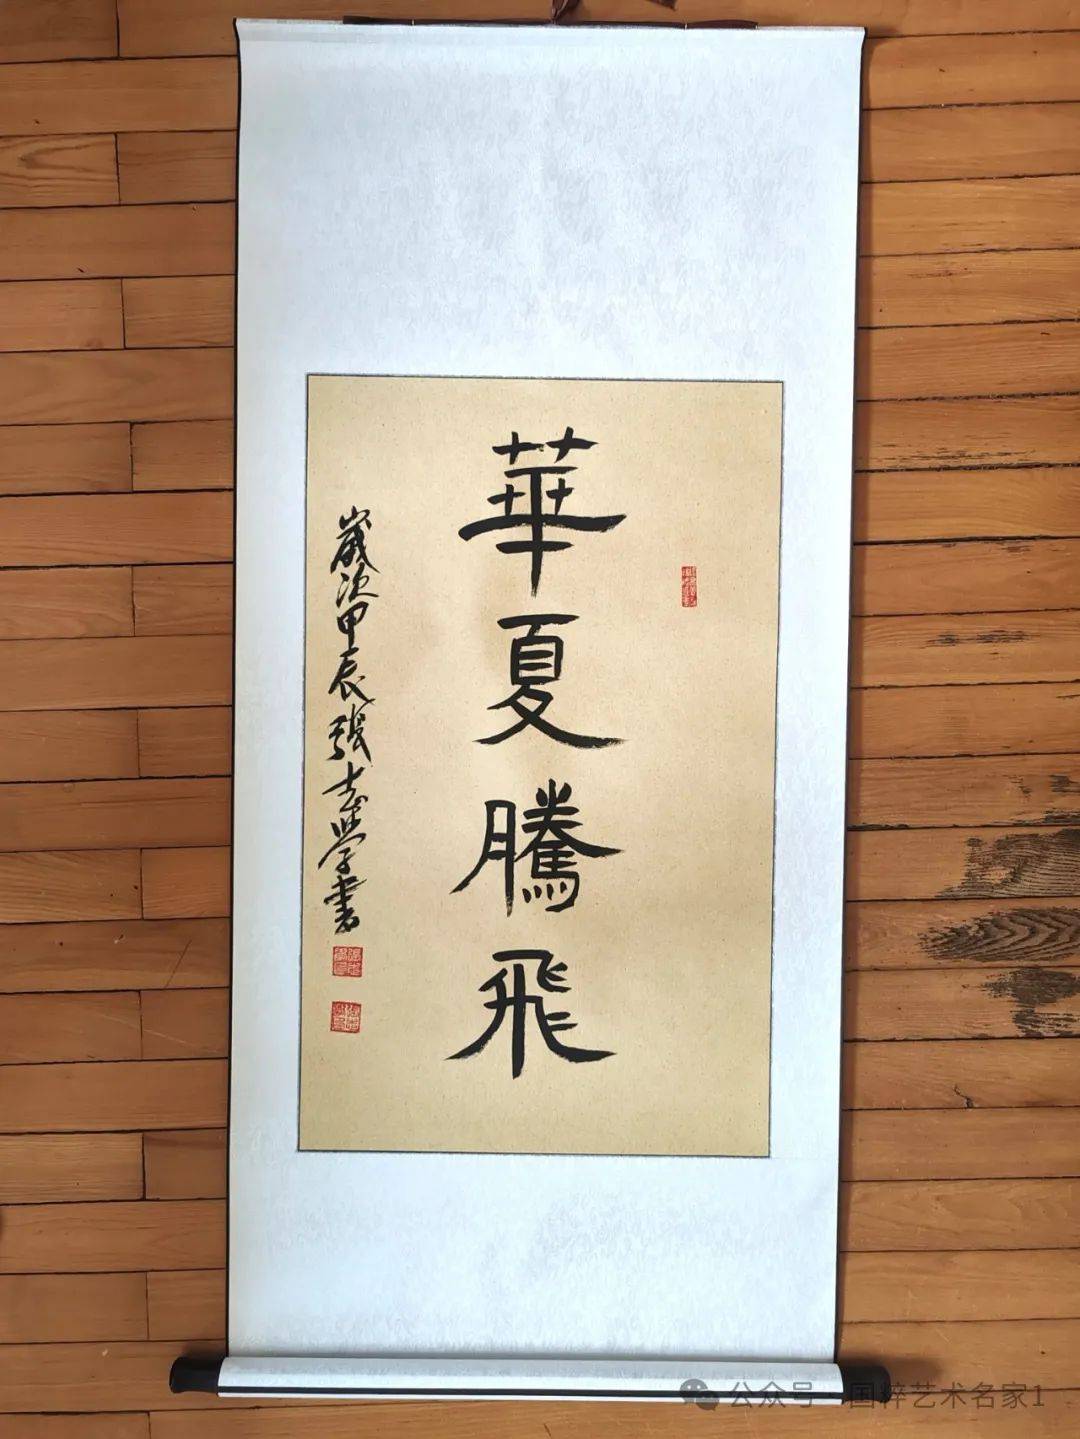 華夏騰飛
歲次甲辰張志學書
公众号 国粹艺术名家1